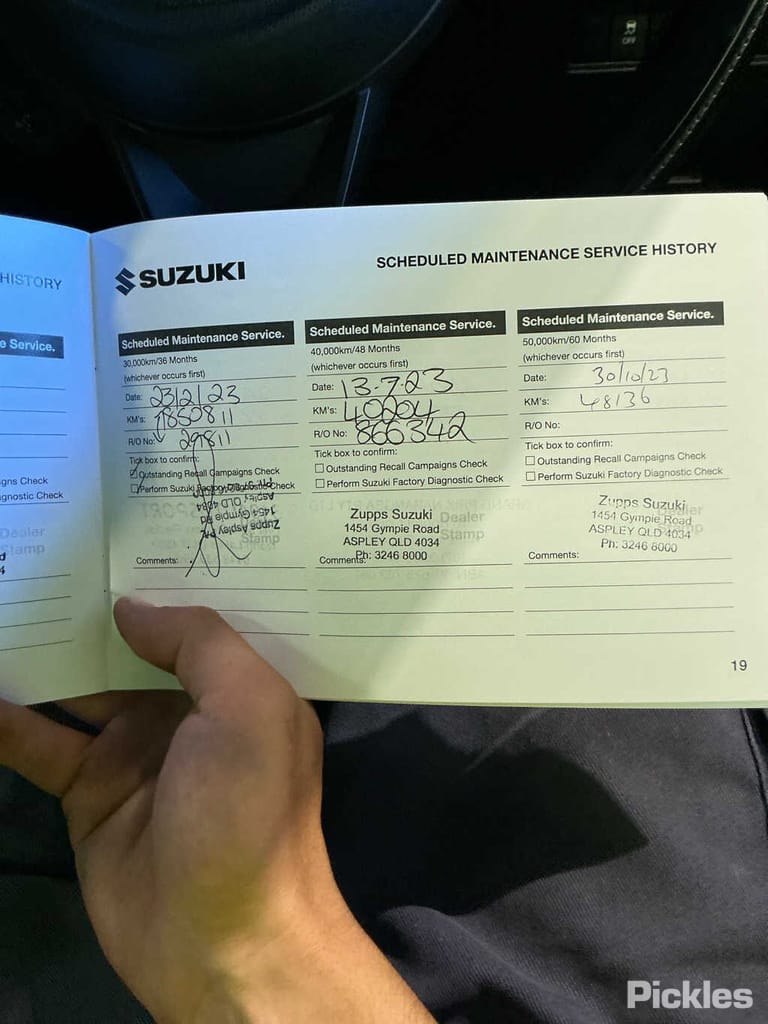 HISTORY
e Service.
gns Check
agnostic Check
Dealer
Stamp
SUZUKI
SCHEDULED MAINTENANCE SERVICE HISTORY
Scheduled Maintenance Service.
30,000km/36 Months
(whichever occurs first)
Date: 23/2/23
KM's:
R/O No: 29811
Tick box to confirm:
Outstanding Recall Campaigns Check
Perform Suzuki Factory Diagnostic Check
Zupps Aspley
1454 Gympie Rd
Aspley, QLD 4034
Stamp
Comments:
Scheduled Maintenance Service.
40,000km/48 Months
(whichever occurs first)
Date: 13.7.23
KM's: 40204
R/O No: 866342
Tick box to confirm:
Outstanding Recall Campaigns Check
Perform Suzuki Factory Diagnostic Check
Zupps Suzuki
1454 Gympie Road
ASPLEY QLD 4034
Ph: 3246 8000
Dealer
Stamp
Comments:
Scheduled Maintenance Service.
50,000km/60 Months
(whichever occurs first)
Date: 30/10/23
KM's: 48136
R/O No:
Tick box to confirm:
Outstanding Recall Campaigns Check
Perform Suzuki Factory Diagnostic Check
Zupps Suzuki
1454 Gympie Road
ASPLEY QLD 4034
Ph: 3246 8000
Dealer
Stamp
Comments:
19
Pickles